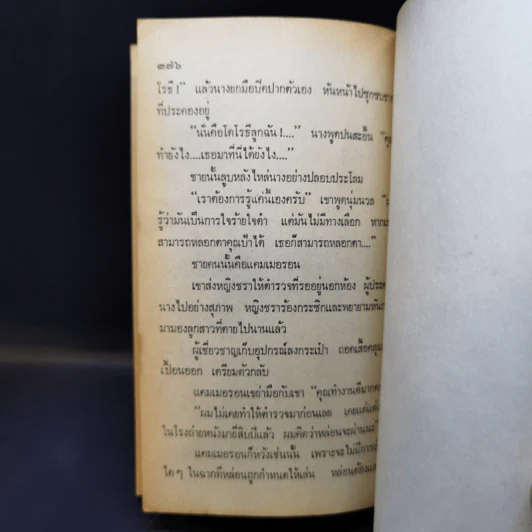 ๓๗๖
โรธี !" แล้วนางยกมือปิดปากตัวเอง หันหน้าไปซุกซบชาย
ที่ประคองอยู่
"นั่นคือโดโรธีลูกฉัน !...." นางพูดปนสะอื้น "คุณ
ทำยังไง....เธอมาที่นี่ได้ยังไง...."
ชายนั้นลูบหลังไหล่นางอย่างปลอบประโลม
"เราต้องการรู้แค่นี้เองครับ" เขาพูดนุ่มนวล
รู้ว่ามันเป็นการใจร้ายใจดำ แต่มันไม่มีทางเลือก หาก
สามารถหลอกตาคุณป้าได้ เธอก็สามารถหลอกตา...."
ชายคนนั้นคือแคมเมอรอน
เขาส่งหญิงชราให้ตำรวจที่รออยู่นอกห้อง ผู้ประ
นางไปอย่างสุภาพ หญิงชราร้องกระซิกและพยายามหัน
มามองลูกสาวที่ตายไปนานแล้ว
ผู้เชี่ยวชาญเก็บอุปกรณ์ลงกระเป๋า ถอดเสื้อคลุม
เปื้อนออก เตรียมตัวกลับ
แคมเมอรอนเขย่ามือกับเขา "คุณทำงานดีมาก
"ผมไม่เคยทำให้ตำรวจมาก่อนเลย เคยแต่แต่ง
ในโรงถ่ายหนังมายี่สิบปีแล้ว ผมคิดว่าหล่อนจะผ่าน
แคมเมอรอนก็หวังเช่นนั้น เพราะจะไม่มีการ
ใด ๆ ในฉากที่หล่อนถูกกำหนดให้เล่น หล่อนต้อง